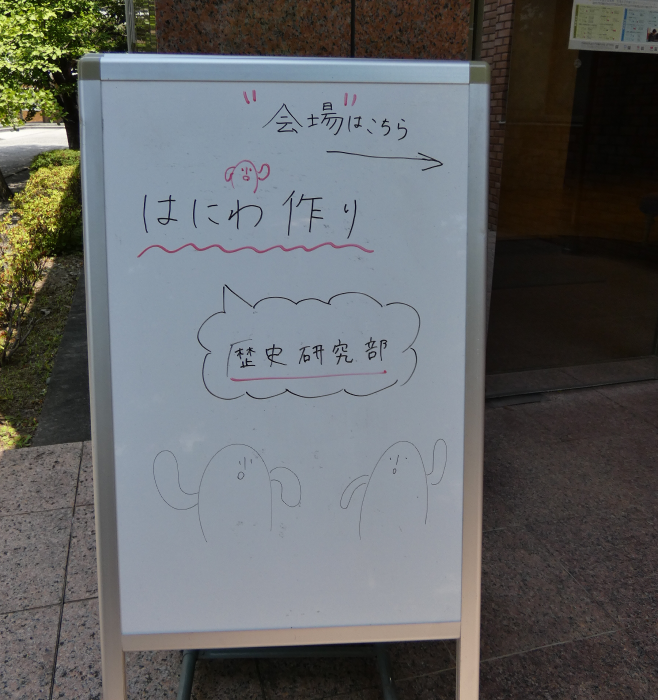 "会場はこちら"
はにわ作り
歴史研究部